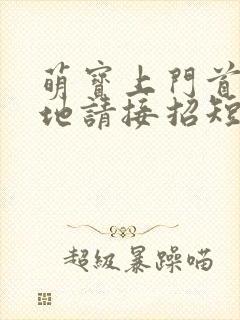 萌寶上門首
地請接招短
超級暴躁喵